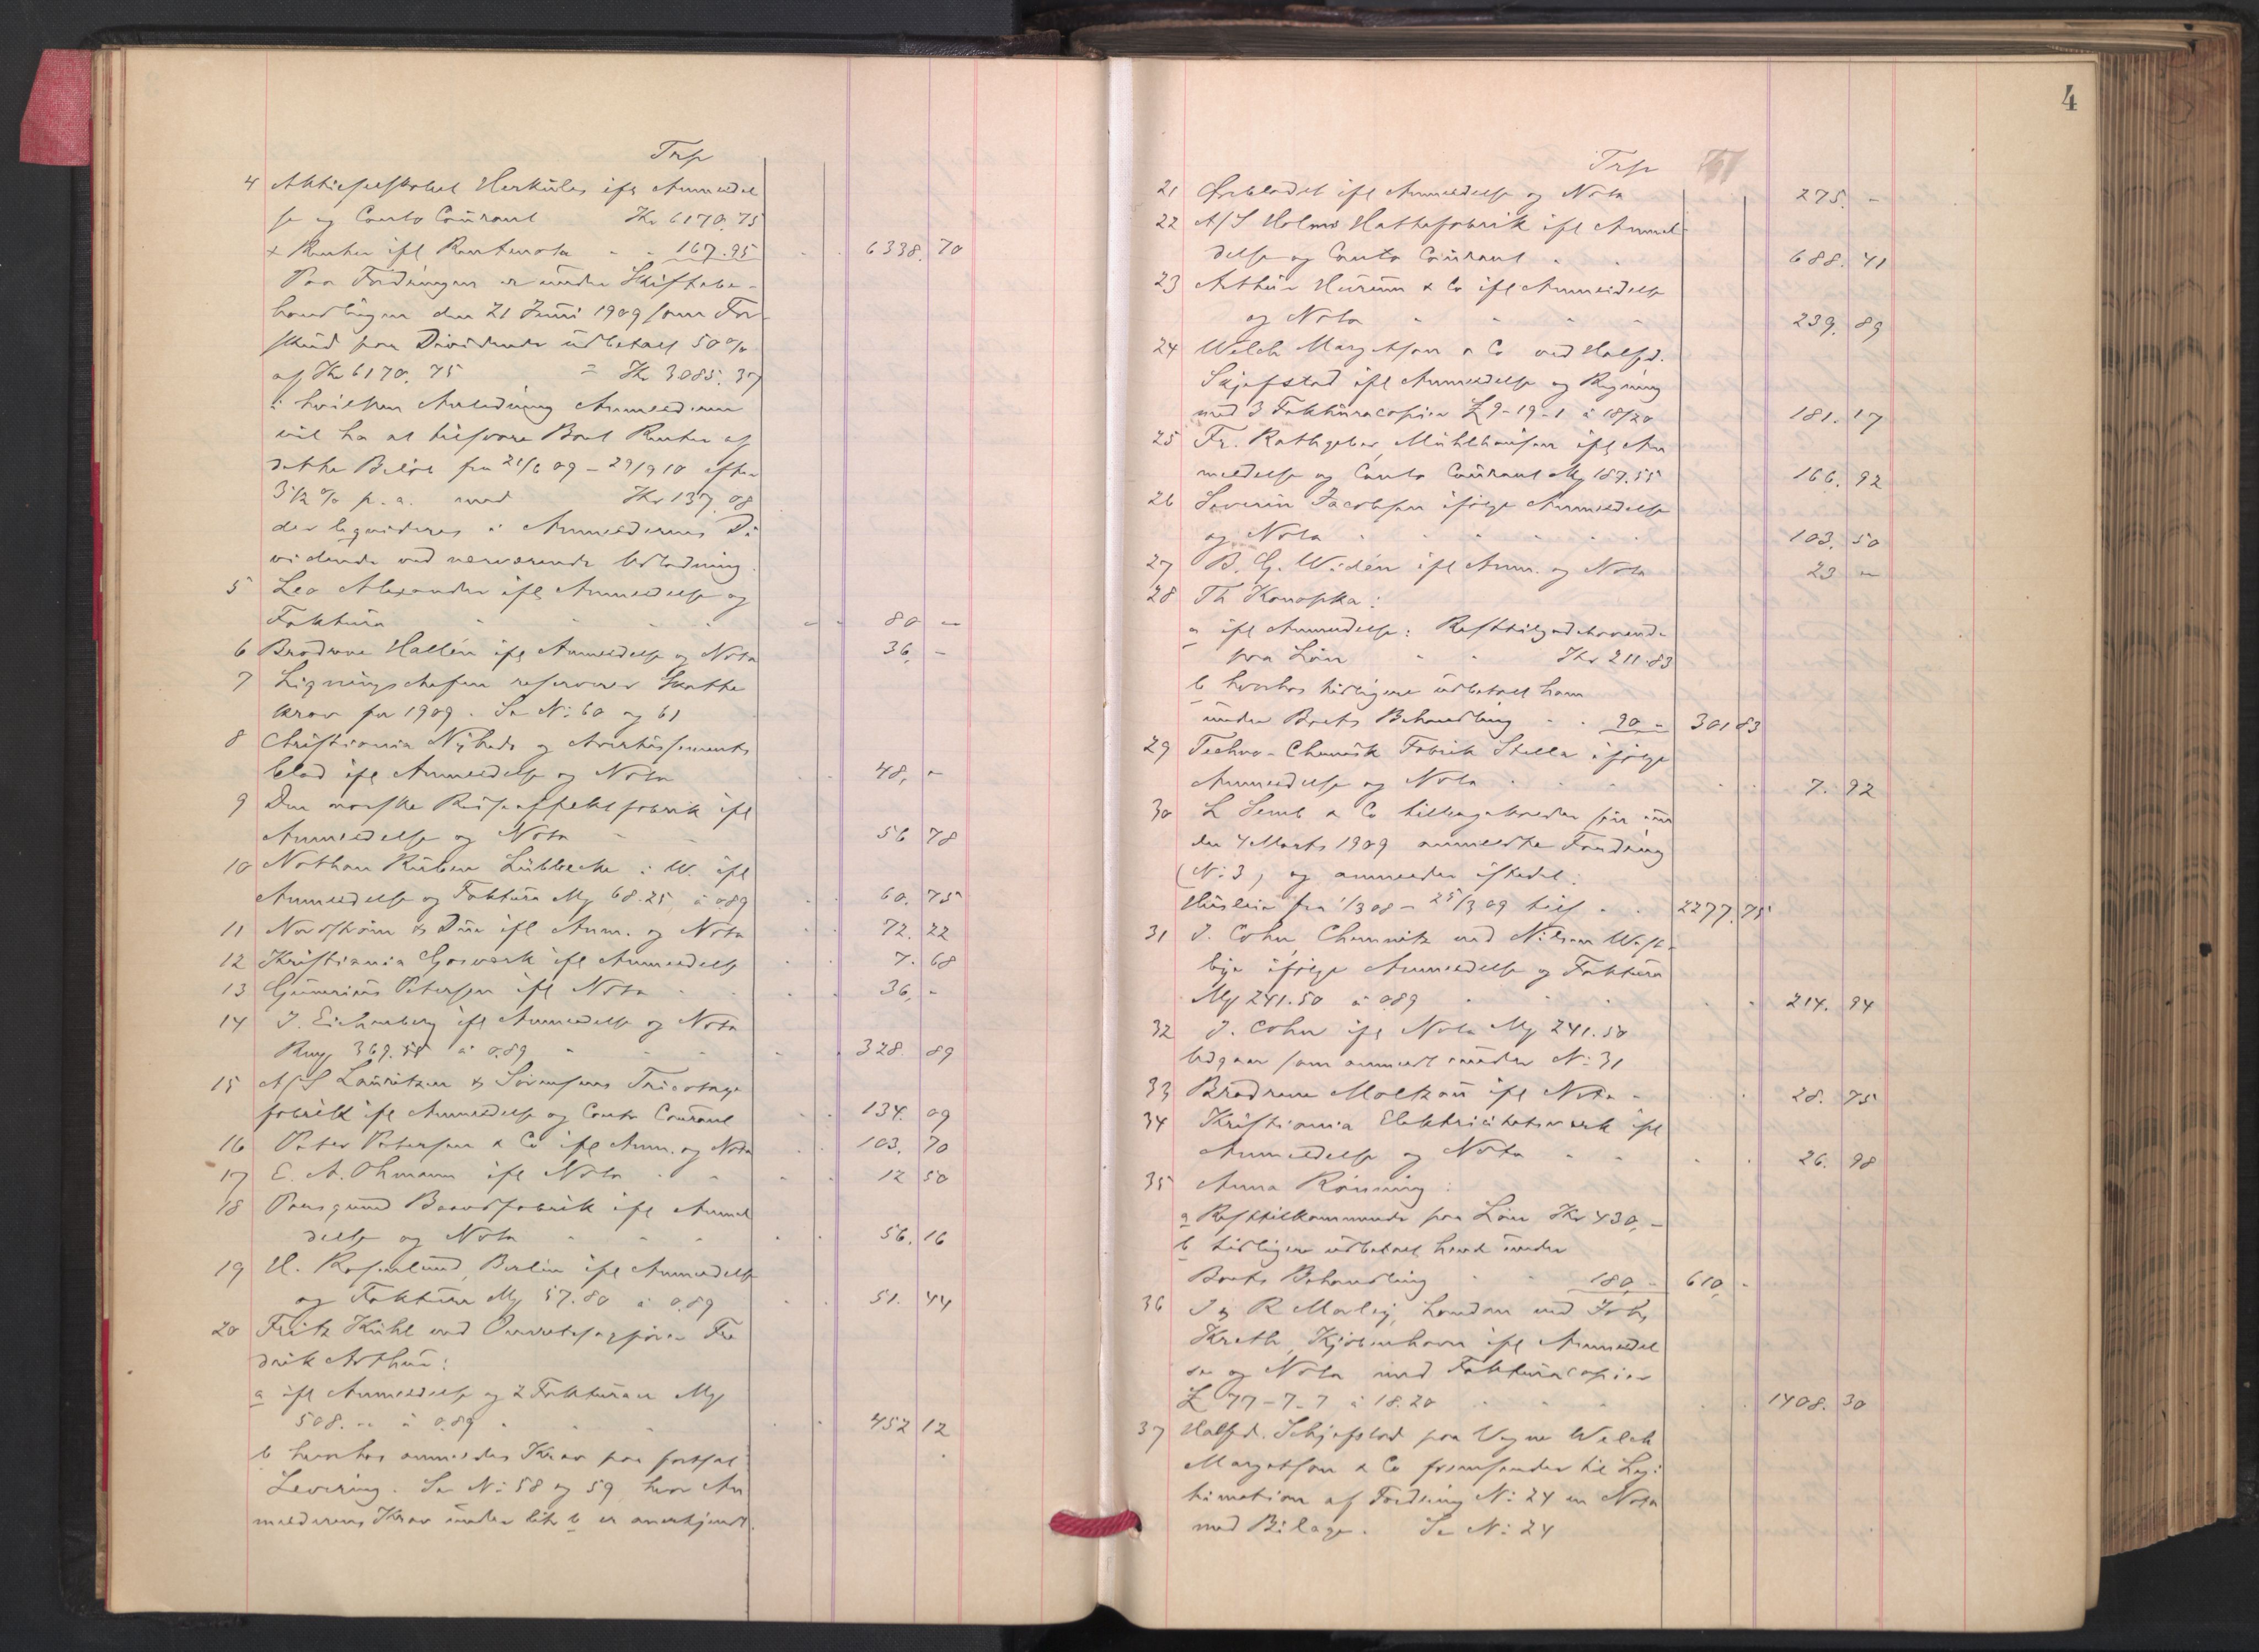 Trsp
4 Aktieselskabet Herkules ifl Anmeldel
se og Conto Courant Kr 6170.75
+ Renter ifl Rentenota - - 167.95 6338.70
Paa Fordringen er under Skiftebe-
handlingen den 21 Juni 1909 som For-
skud paa Dividende udbetalt 50%
af Kr 6170.75 = Kr 3085.37
i hvilken Anledning Anmelderne
vil ha at tilsvare Boet Renter af
dette Beløb fra 21/6 09 - 29/9 10 efter
3 1/2 % p.a. med Kr 137.08
der likvideres i Anmeldernes Di
vidende ved nærværende Udlodning.
5 Leo Alexander ifl Anmeldelse og
Faktura - - - - 80 -
6 Brødrene Hallén ifl Anmeldelse og Nota 36, -
7 Ligningschefen reserverer Skatte
krav for 1909. Se No: 60 og 61
8 Christiania Nyheds og Avertissements
blad ifl Anmeldelse og Nota 48, -
9 Den norske Reiseeffektfabrik ifl
Anmeldelse og Nota - - 56 78
10 Nathan Ruben Lübbecke i W. ifl
Anmeldelse og Faktura Mg 68.25 à 089 60.75
11 Nordstrøm & Due ifl Anm. og Nota 72.22
12 Kristiania Gasværk ifl Anmeldelse 7.68
13 Gunerius Petersen ifl Nota - 36, -
14 J. Eichenberg ifl Anmeldelse og Nota
Rmg 369.55 à 0.89 - - - 328.89
15 A/S Lauritzen & Sørensens Tricotage
fabrik ifl Anmeldelse og Conto Courant 134.09
16 Peter Petersen & Co ifl Anm. og Nota 103.70
17 E. A. Ohmann ifl Nota - - 12 50
18 Porsgrund Baandfabrik ifl Anmel
delse og Nota - - - 56.16
19 H. Rosenlund, Berlin ifl Anmeldelse
og Faktura Mg 57.80 à 0.89 51.44
20 Fritz Kühl ved Overretssagfører Fre
drik Arthur:
a ifl Anmeldelse og 2 Fakturaer Mg
508. -- à 0.89 - - - 452 12
b hvorhos anmeldes Krav paa fortsat
Levering. Se No: 58 og 59 hvor An
melderens Krav under litr b er anerkjendt.
4
Trsp
21 Ørebladet ifl Anmeldelse og Nota 275. -
22 A/S Holms Hattefabrik ifl Anmel-
delse og Conto Courant - - 688.41
23 Arthur Hurum & Co ifl Anmeldelse
og Nota - - - - 239.89
24 Welch Margetson & Co ved Halfd.
Skjefstad ifl Anmeldelse og Regning
med 3 Fakturacopier £ 9-19-1 à 18/20 181.17
25 Fr. Rathgeber, Mühlhausen ifl An
meldelse og Conto Courant Mg 187.55 166.92
26 Severin Jacobsen ifølge Anmeldelse
og Nota - - - - - 103.50
27 B. G. Widén ifl Anm. og Nota 23 -
28 Th Konopka:
a ifl Anmeldelse: Resttilgodehavende
paa Løn - - Kr 211.83
b hvorhos tidligere udbetalt ham
under Boets Behandling - - 90 - 301 83
29 Techno-Chemisk Fabrik Stella ifølge
Anmeldelse og Nota - - - - 7.92
30 L Semb & Co tilbagekalder sin
den 4 Marts 1909 anmeldte Fordring
(No: 3) og anmelder istedet:
Husleie fra 1/3 08 - 25/3 09 tils - - 2277.75
31 J. Cohn, Chemnitz ved Nilsen West-
bye ifølge Anmeldelse og Faktura
Mg 241.50 à 089 - - - 214.94
32 J. Cohn ifl Nota Mg 241.50
Udgaar som anmeldt under No: 31
33 Brødrene Moltzau ifl Nota - 28.75
34 Kristiania Elektricitetsverk ifl
Anmeldelse og Nota - - 26.98
35 Anna Rønning:
a Resttilkommende paa Løn Kr 430, -
b tidligere udbetalt hende under
Boets Behandling - - 180, - 610, -
36 J & R Morley, London ved Johs
Kreth, Kjøbenhavn ifl Anmeldel
se og Nota med Fakturacopier
£ 77-7-7 à 18.20 - - - 1408.30
37 Halfd. Schjefstad paa Vegne Welch
Margetson & Co fremsender til Legi
timation af Fordring No: 24 en Nota
med Bilage. Se No: 24